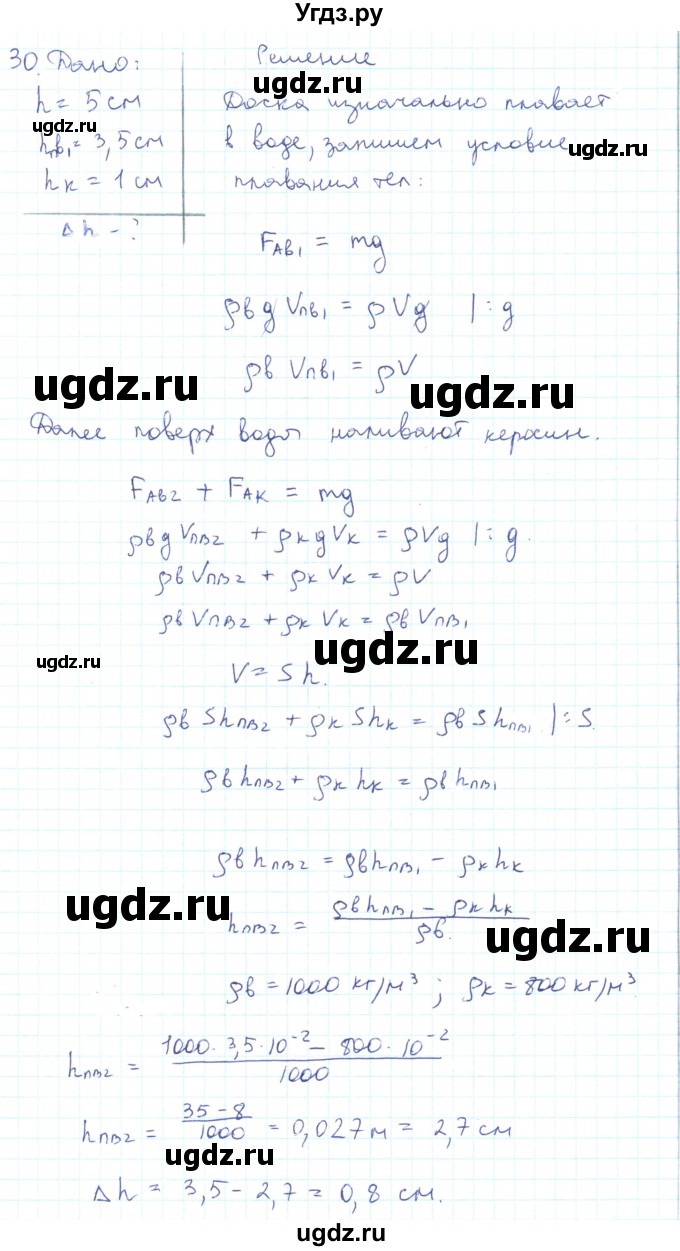 Угдз.ру
30. Дано:
Решение
ugdz.ru
h = 5 см
Доска изначально плавает
ugdz.ru
hпв₁ = 3,5 см
в воде, запишем условие
ugdz.ru
hк = 1 см
плавания тел:
Δh - ?
FAB₁ = mg
ρв g Vпв₁ = ρVg |: g
ρв Vпв₁ = ρV
ugdz.ru
ugdz.ru
Далее поверх воды наливают керосин.
FAB2 + FAK = mg
ρв g Vпв2 + ρк g Vк = ρVg |: g.
ρв Vпв2 + ρк Vк = ρV
ρв Vпв2 + ρк Vк = ρв Vпв₁
ugdz.ru
ugdz.ru
V = Sh.
ρв Shпв2 + ρк Shк = ρв Shпв₁ |: S.
ρв hпв2 + ρк hк = ρв hпв₁
ρв hпв2 = ρв hпв₁ - ρк hк
ugdz.ru
hпв2 = (ρв hпв₁ - ρк hк) / ρв.
ugdz.ru
ρв = 1000 кг/м³; ρк = 800 кг/м³
hпв2 = (1000 · 3,5 · 10⁻² - 800 · 10⁻²) / 1000
hпв2 = (35 - 8) / 1000 = 0,027 м = 2,7 см
ugdz.ru
Δh = 3,5 - 2,7 = 0,8 см.
ugdz.ru